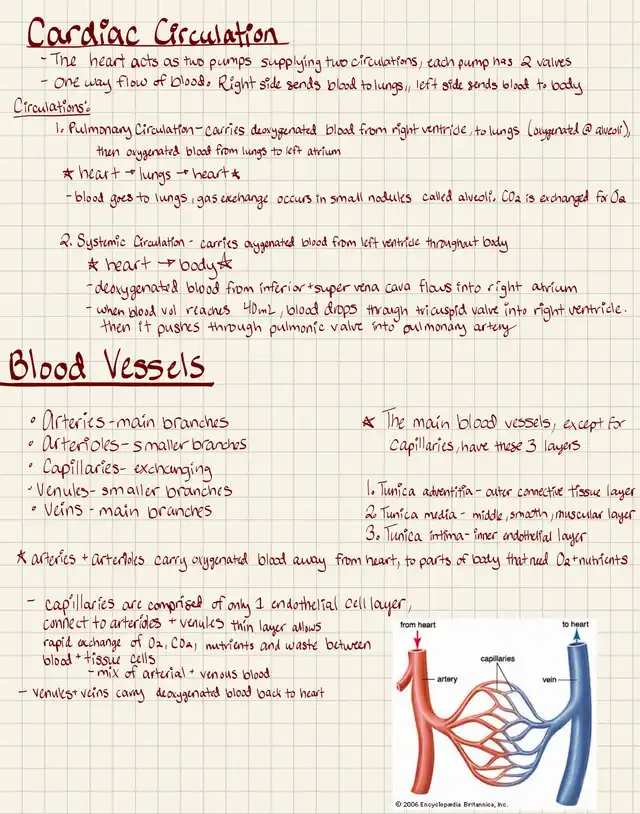 Cardiac Circulation
- The heart acts as two pumps supplying two circulations, each pump has 2 valves
- One way flow of blood. Right side sends blood to lungs, left side sends blood to body
Circulations:
1. Pulmonary Circulation - carries deoxygenated blood from right ventricle, to lungs (oxygenated @ alveoli),
then oxygenated blood from lungs to left atrium
★ heart → lungs → heart ★
- blood goes to lungs, gas exchange occurs in small nodules called alveoli. CO2 is exchanged for O2
2. Systemic Circulation - carries oxygenated blood from left ventricle throughout body
★ heart → body ★
- deoxygenated blood from inferior + super vena cava flows into right atrium
- when blood vol reaches 40mL, blood drops through tricuspid valve into right ventricle.
then it pushes through pulmonic valve into pulmonary artery
Blood Vessels
• Arteries - main branches
• Arterioles - smaller branches
• Capillaries - exchanging
• Venules - smaller branches
• Veins - main branches
★ The main blood vessels, except for
capillaries, have these 3 layers
1. Tunica adventitia - outer connective tissue layer
2. Tunica media - middle, smooth, muscular layer
3. Tunica intima - inner endothelial layer
★ arteries + arterioles carry oxygenated blood away from heart, to parts of body that need O2 + nutrients
- capillaries are comprised of only 1 endothelial cell layer,
connect to arterioles + venules thin layer allows
rapid exchange of O2, CO2, nutrients and waste between
blood + tissue cells
- mix of arterial + venous blood
- venules + veins carry deoxygenated blood back to heart
from heart
to heart
capillaries
artery
vein
© 2006 Encyclopædia Britannica, Inc.